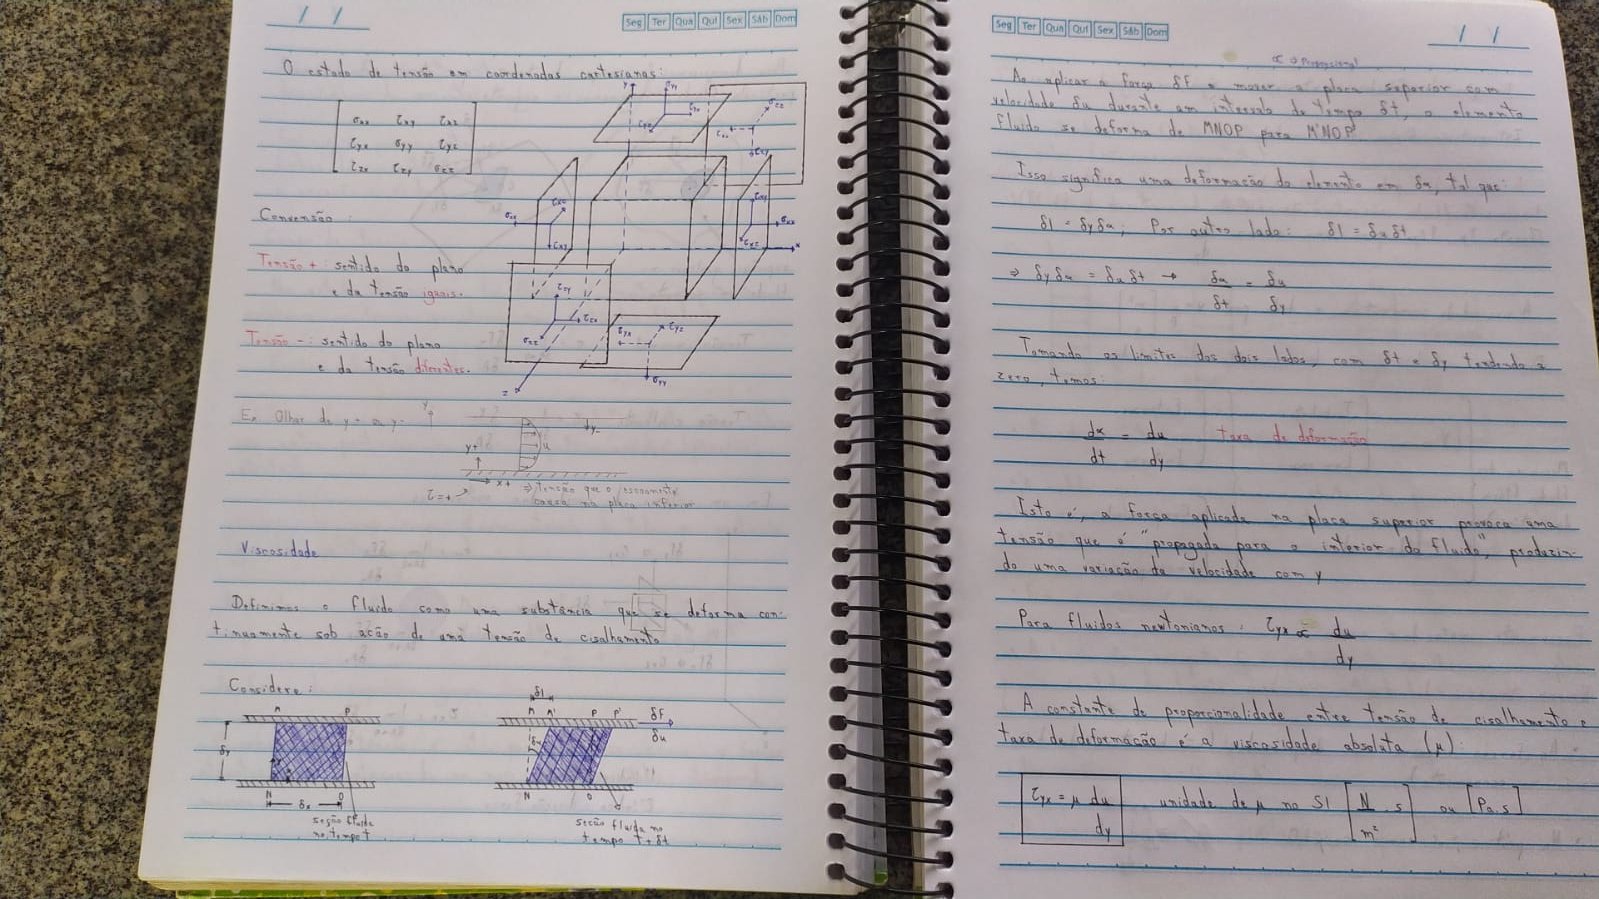 / /
Seg Ter Qua Qui Sex Sáb Dom
O estado de tensão em coordenadas cartesianas:
σxx τxy τxz
τyx σyy τyz
τzx τzy σzz
Convensão:
Tensão +: sentido do plano
e da tensão iguais.
Tensão -: sentido do plano
e da tensão diferentes.
y
σyy
τyx
τyz
σzz
τzx
τzy
σxx
τxz
τxy
τxy
σxx
τxz
x
τzy
τzx
σzz
z
τyx
τyz
σyy
Ex Olhar de y+ ou y-
y
dy-
u
y+
x+
τ=+
⇒ Tensão que o escoamento
causa na placa inferior
Viscosidade
Definimos o fluido como uma substância que se deforma con-
tinuamente sob ação de uma tensão de cisalhamento
Considere:
M P
δy
N O
δx
seção fluida
no tempo t
δl
M M' P P' δF
δα δu
N O
seção fluida no
tempo t + δt
Seg Ter Qua Qui Sex Sáb Dom
/ /
α ⇒ Proporcional
Ao aplicar a força δF e mover a placa superior com
velocidade δu durante um intervalo de tempo δt, o elemento
fluido se deforma de MNOP para M'NOP'
Isso significa uma deformação do elemento em δα, tal que:
δl = δyδα, Por outro lado: δl = δuδt
⇒ δyδα = δuδt → δα/δt = δu/δy
Tomando os limites dos dois lados, com δt e δy tendendo a
zero, temos:
dα/dt = du/dy taxa de deformação
Isto é, a força aplicada na placa superior provoca uma
tensão que é "propagada para o interior do fluido", produzin-
do uma variação da velocidade com y
Para fluidos newtonianos: τyx ∝ du/dy
A constante de proporcionalidade entre tensão de cisalhamento e
taxa de deformação é a viscosidade absoluta (μ)
τyx = μ du/dy unidade de μ no SI [N/m² . s] ou [Pa.s]